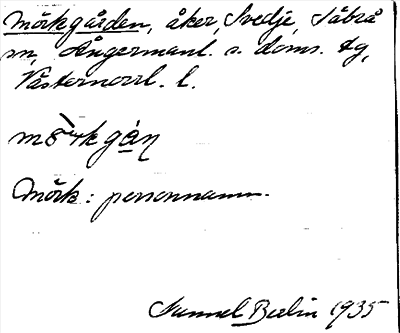 Mörkgården, åker, Svedje, Säbrå
sn, Ångermanl. s. doms. tg,
Västernorrl. l.
mö̀rkgàɳ
Mörk: personnamn.
Samuel Berlin 1935